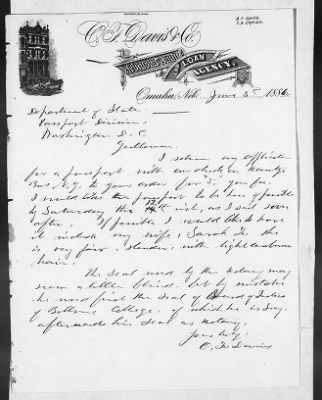 C. F. Davis & Co.
LOAN
AGENCY.
Omaha, Neb. June 3d 1886
Department of State
Passport Division,
Washington D.C.
Gentlemen
I return my application
for a passport with
to your order for
I would like the passport to be here if possible
by Saturday the 12th inst, as I sail soon
after. If possible I would like to have
it include my wife, Sarah
is very fair, slender, with light auburn
hair.
The seal used by the Notary may
seem a little blind, but by mistake
he used first the seal of Board of Trustees
of Bellevue College, of which he is Secy.
afterwards his seal as notary.
Yours truly,
C. F. Davis